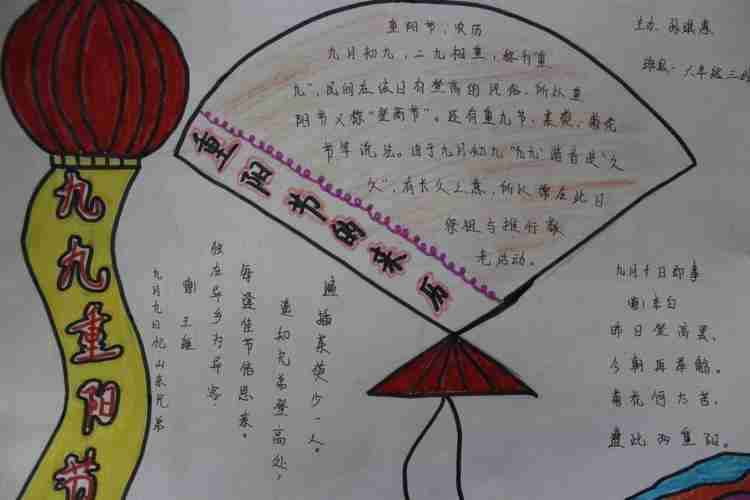 九九重阳节
重阳节的来历
重阳节，农历
九月初九，二九相重，称为"重
九"，民间在该日有登高的风俗，所以重
阳节又称"登高节"。还有重九节、茱萸、菊花
节等说法。由于九月初九"九九"谐音是"久
久"，有长久之意，所以常在此日
祭祖与推行敬
老活动。
主办：
班级：六年级三班
九月九日忆山东兄弟
唐 王维
独在异乡为异客，
每逢佳节倍思亲。
遥知兄弟登高处，
遍插茱萸少一人。
九月十日即事
唐 李白
昨日登高罢，
今朝再举觞。
菊花何太苦，
遭此两重阳。